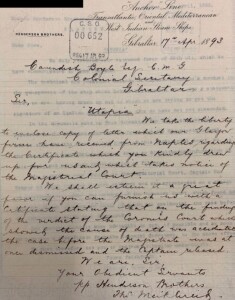 Anchor Line
Transatlantic, Oriental, Mediterranean
and
West Indian Steam Ships
HENDERSON BROTHERS.
C.S.O.
00652
Gibraltar 17th Apr. 1893
Cavendish Boyle Esq C.M.G
Colonial Secretary
Gibraltar
Sir,
"Utopia"
We take the liberty
to enclose copy of letter which our Glasgow
firm have received from Naples regarding
the Certificate which you kindly drew
up for us and which takes notice of
the Magistrates Court.
We shall esteem it a great
favor if you can furnish us with a
Certificate stating that on the finding
of the verdict of the Coroner's Court which
showed the cause of death was accidental
the case before the Magistrate was at
once dismissed and the Captain released.
We are Sir,
Your Obedient Servants
pp Henderson Brothers